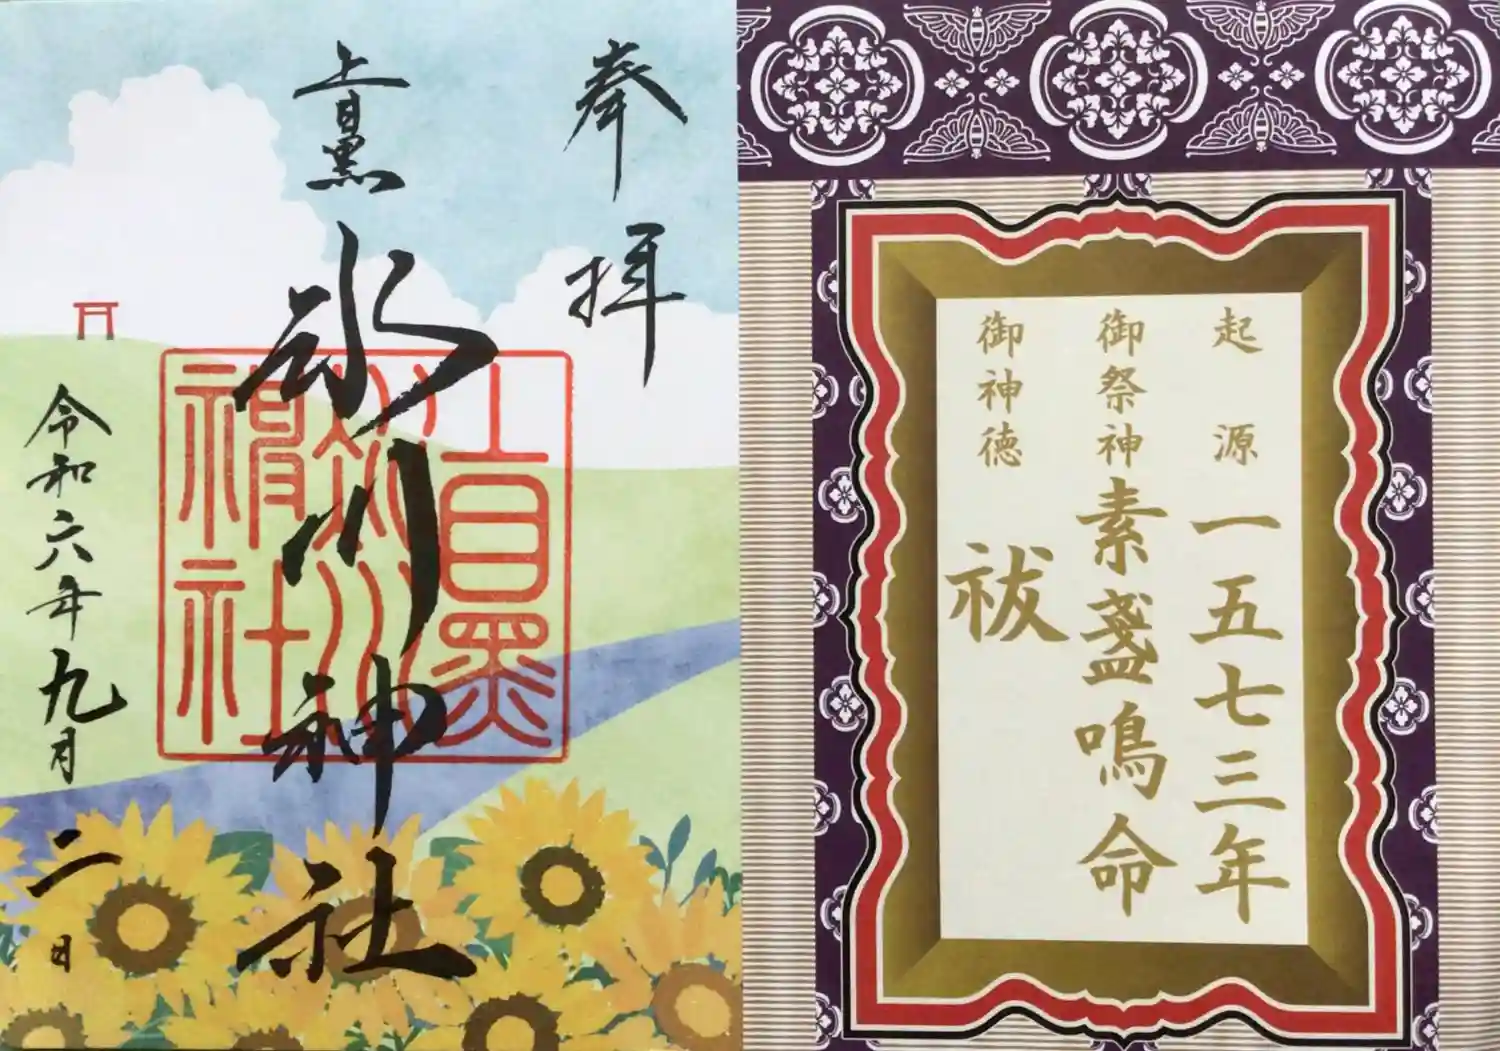 奉拝
上目黒
氷川神社
上目黒
氷川
神社
令和六年九月二日
起源 一五七三年
御祭神 素盞鳴命
御神徳 祓